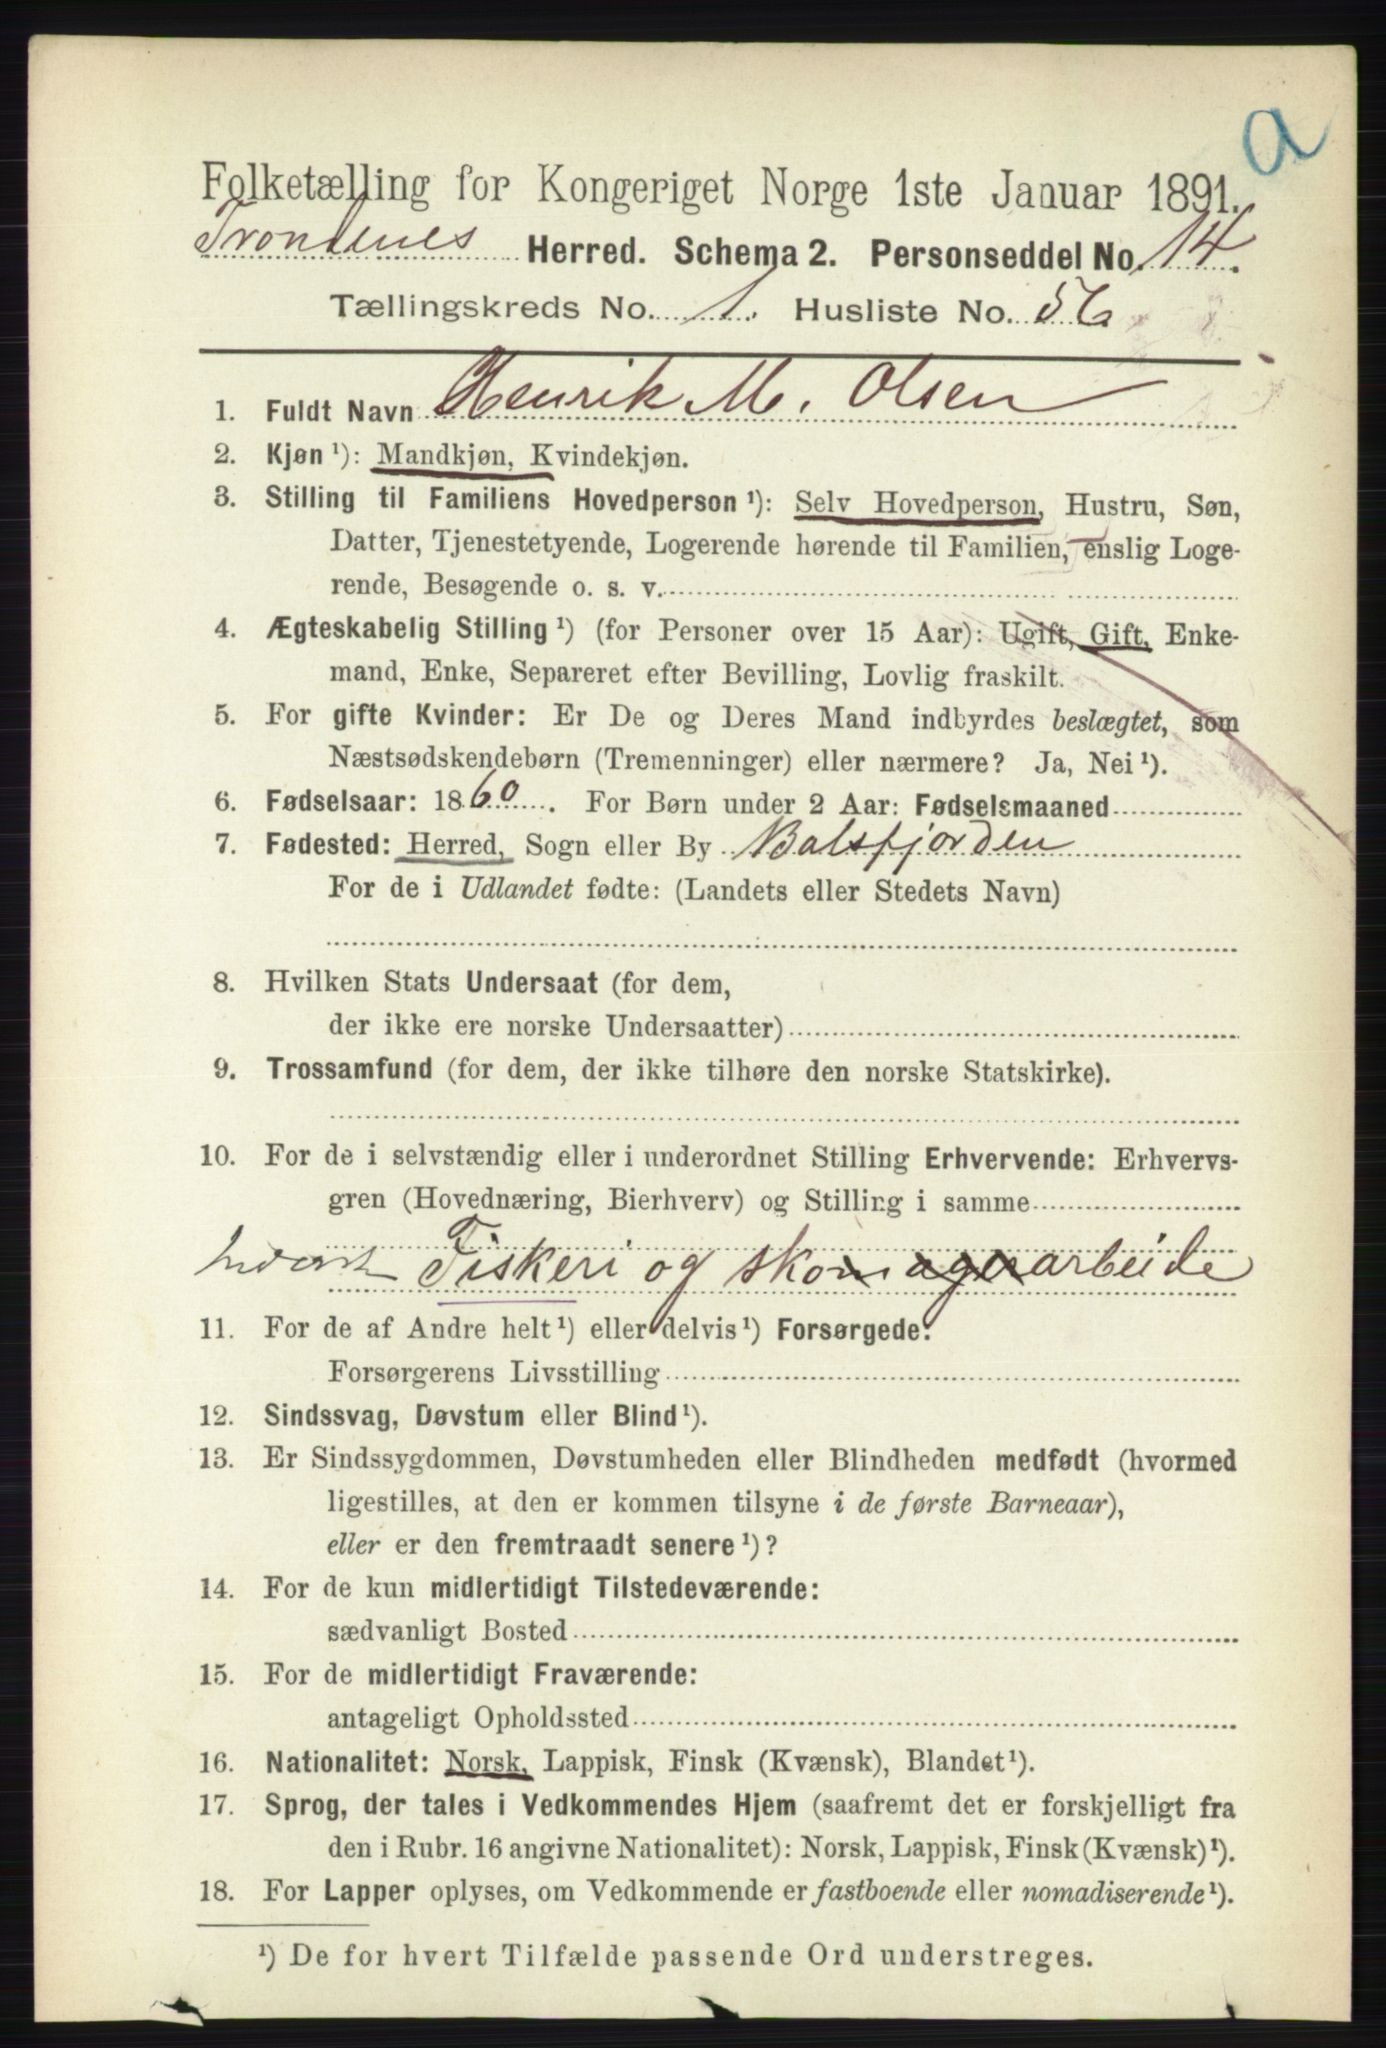 a
Folketælling for Kongeriget Norge 1ste Januar 1891.
Trondenes Herred. Schema 2. Personseddel No. 14.
Tællingskreds No. 1. Husliste No. 56
1. Fuldt Navn Henrik M. Olsen
2. Kjøn ¹): Mandkjøn, Kvindekjøn.
3. Stilling til Familiens Hovedperson ¹): Selv Hovedperson, Hustru, Søn,
Datter, Tjenestetyende, Logerende hørende til Familien, enslig Loge-
rende, Besøgende o. s. v.
4. Ægteskabelig Stilling ¹) (for Personer over 15 Aar): Ugift, Gift, Enke-
mand, Enke, Separeret efter Bevilling, Lovlig fraskilt.
5. For gifte Kvinder: Er De og Deres Mand indbyrdes beslægtet, som
Næstsødskendebørn (Tremenninger) eller nærmere? Ja, Nei ¹).
6. Fødselsaar: 1860. For Børn under 2 Aar: Fødselsmaaned
7. Fødested: Herred, Sogn eller By Balsfjorden
For de i Udlandet fødte: (Landets eller Stedets Navn)
8. Hvilken Stats Undersaat (for dem,
der ikke ere norske Undersaatter)
9. Trossamfund (for dem, der ikke tilhøre den norske Statskirke).
10. For de i selvstændig eller i underordnet Stilling Erhvervende: Erhvervs-
gren (Hovednæring, Bierhverv) og Stilling i samme
Fiskeri og skomagerarbeide
11. For de af Andre helt ¹) eller delvis ¹) Forsørgede:
Forsørgerens Livsstilling
12. Sindssvag, Døvstum eller Blind ¹).
13. Er Sindssygdommen, Døvstumheden eller Blindheden medfødt (hvormed
ligestilles, at den er kommen tilsyne i de første Barneaar),
eller er den fremtraadt senere ¹)?
14. For de kun midlertidigt Tilstedeværende:
sædvanligt Bosted
15. For de midlertidigt Fraværende:
antageligt Opholdssted
16. Nationalitet: Norsk, Lappisk, Finsk (Kvænsk), Blandet ¹).
17. Sprog, der tales i Vedkommendes Hjem (saafremt det er forskjelligt fra
den i Rubr. 16 angivne Nationalitet): Norsk, Lappisk, Finsk (Kvænsk) ¹).
18. For Lapper oplyses, om Vedkommende er fastboende eller nomadiserende ¹).
¹) De for hvert Tilfælde passende Ord understreges.